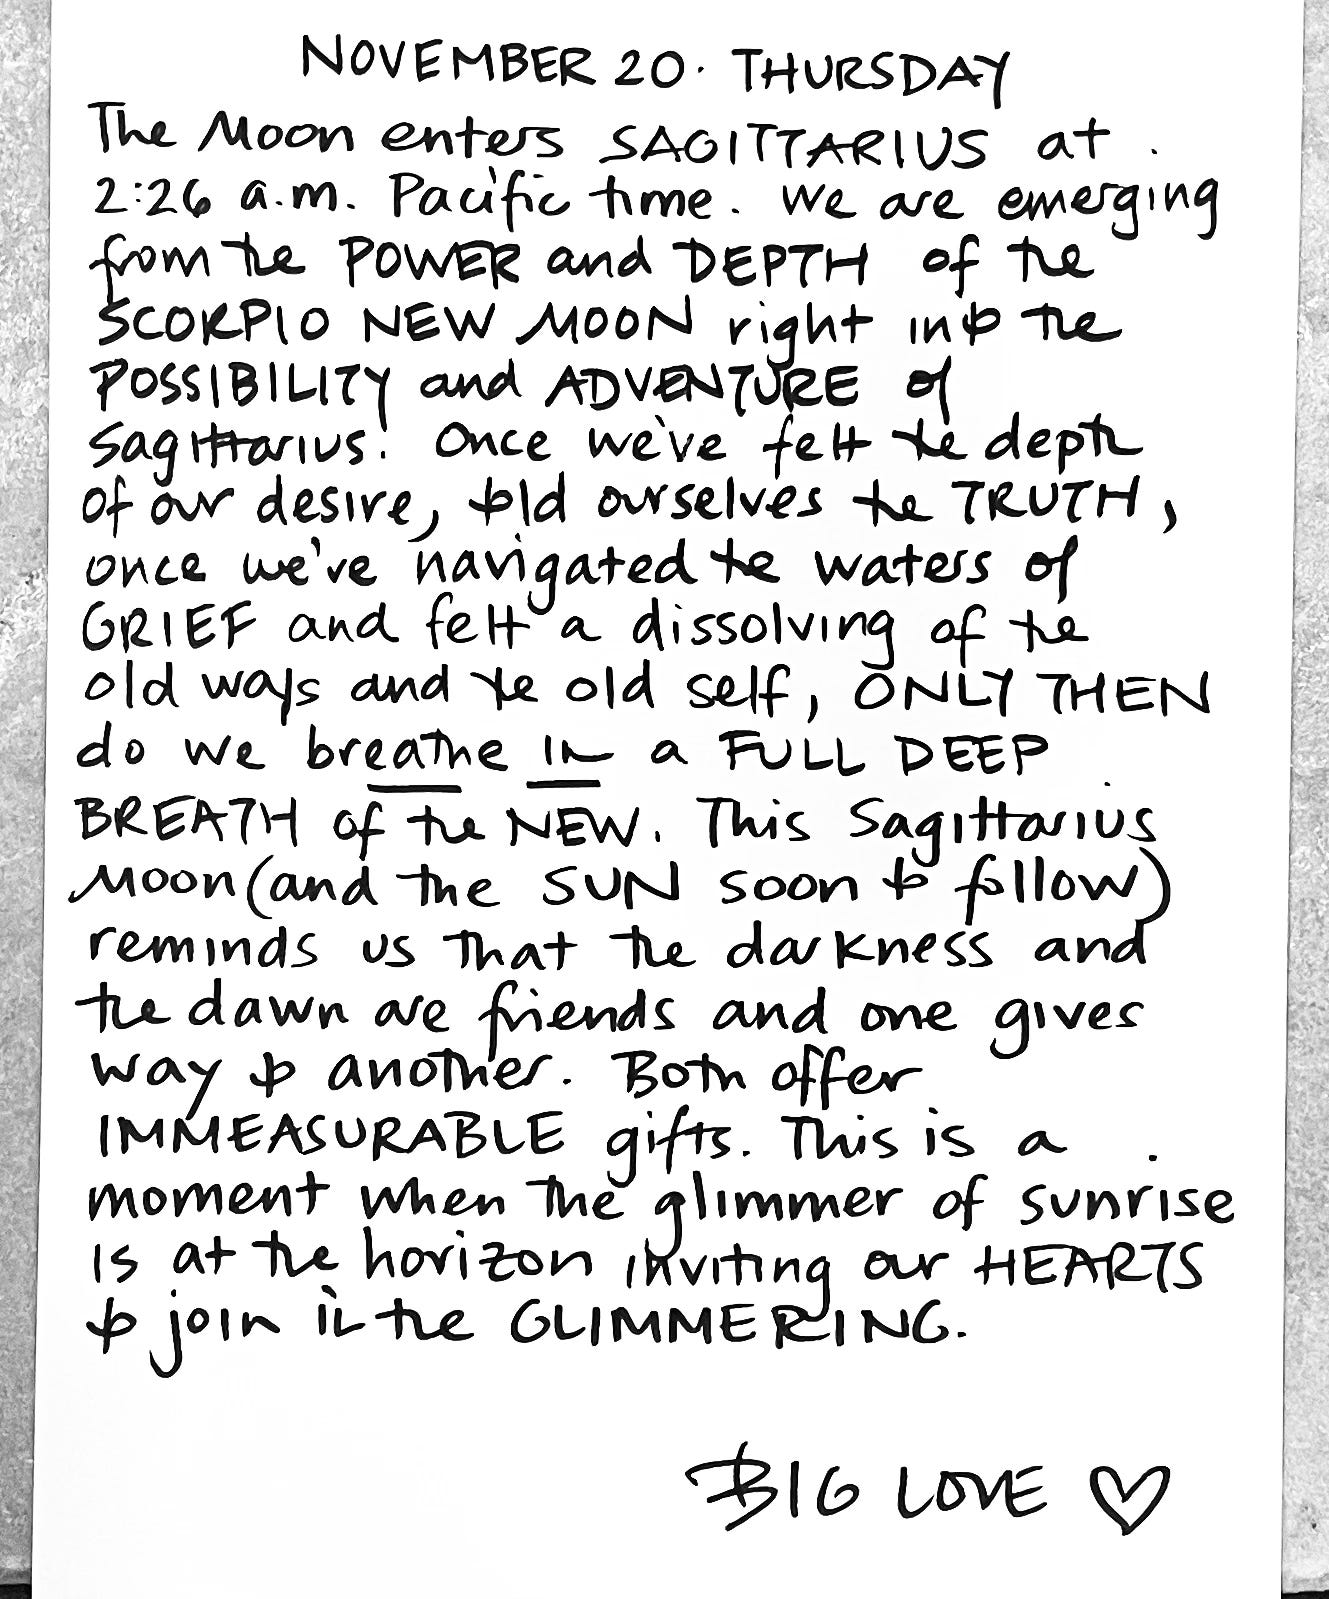 NOVEMBER 20. THURSDAY
The Moon enters SAGITTARIUS at
2:26 a.m. Pacific time. We are emerging
from the POWER and DEPTH of the
SCORPIO NEW MOON right into the
POSSIBILITY and ADVENTURE of
Sagittarius. Once we've felt the depth
of our desire, told ourselves the TRUTH,
once we've navigated the waters of
GRIEF and felt a dissolving of the
old ways and the old self, ONLY THEN
do we breathe IN a FULL DEEP
BREATH of the NEW. This Sagittarius
Moon (and the SUN soon to follow)
reminds us that the darkness and
the dawn are friends and one gives
way to another. Both offer
IMMEASURABLE gifts. This is a
moment when the glimmer of sunrise
is at the horizon inviting our HEARTS
to join in the GLIMMERING.
BIG LOVE ♡